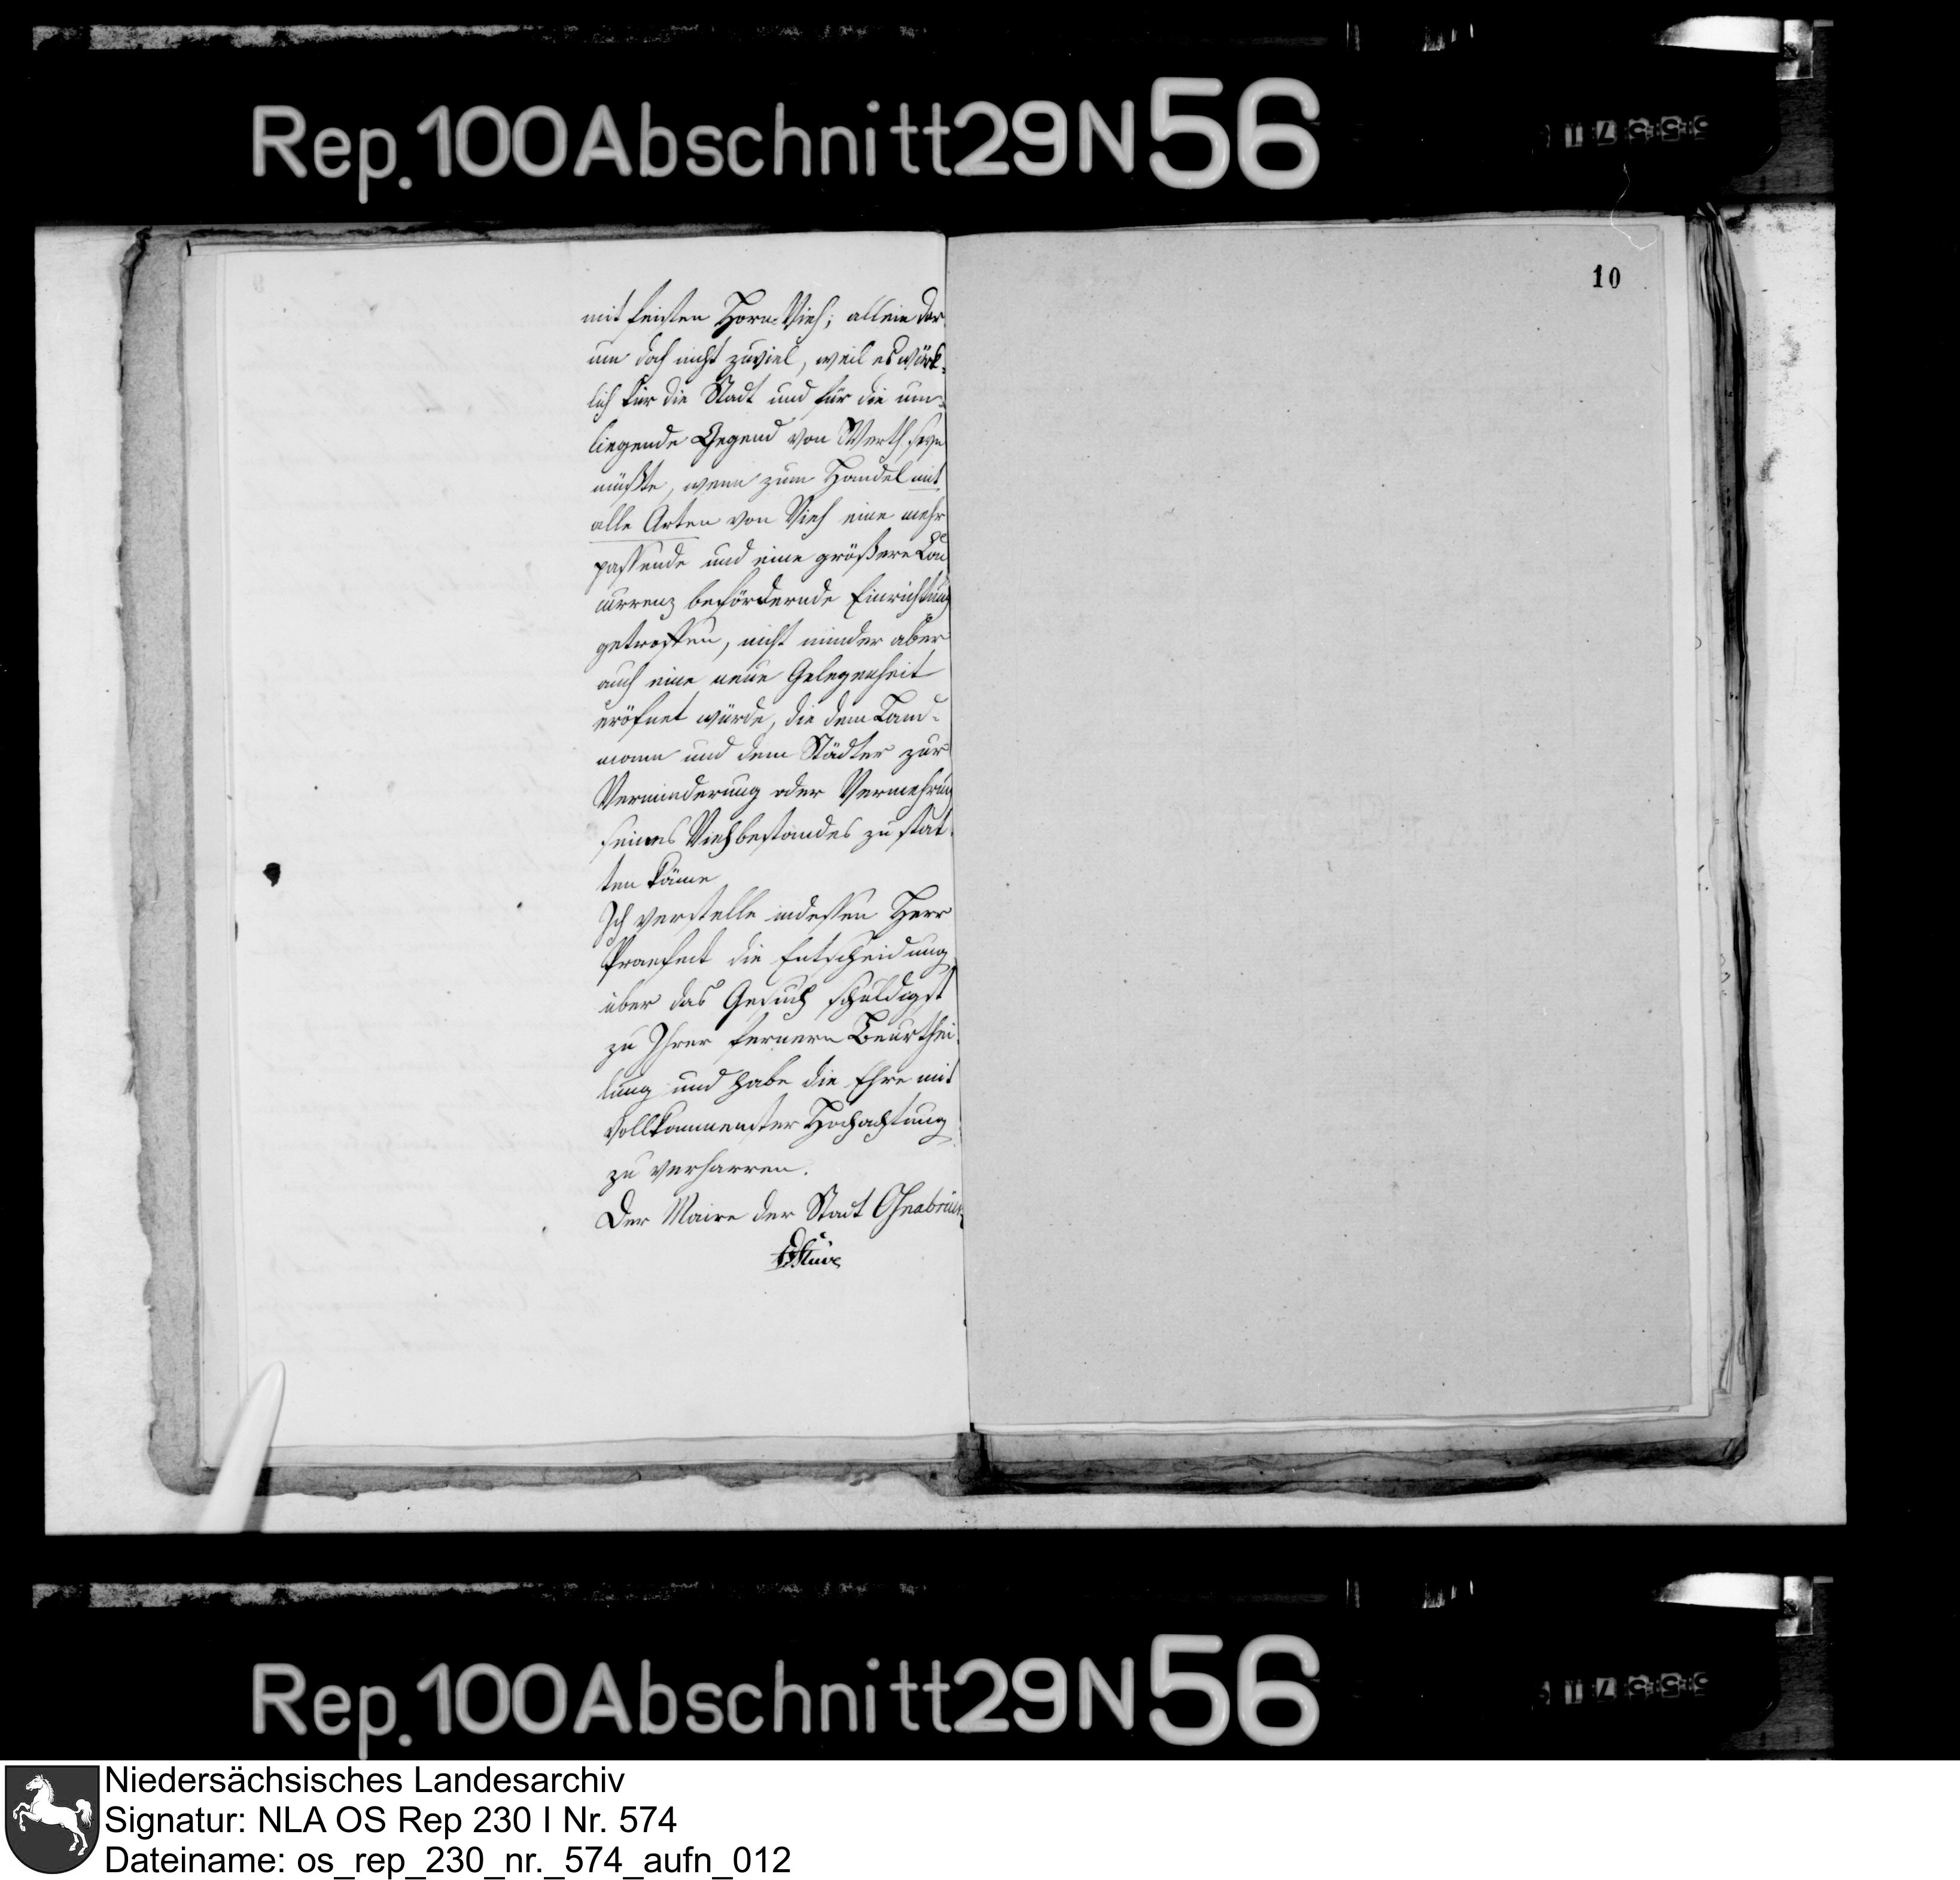 Rep.100Abschnitt29N56
10
mit feisten Horn-Vieh; allein dar
um doch nicht zuviel, weil es würk-
lich für die Stadt und für die um-
liegende Gegend von Werth seyn
müßte, wenn zum Handel mit
alle Arten von Vieh eine mehr
passende und eine größere Con
currenz befördernde Einrichtung
getroffen, nicht minder aber
auch eine neue Gelegenheit
eröfnet würde, die dem Land-
mann und dem Städter zur
Verminderung oder Vermehrung
seines Viehbestandes zu stat
ten käme
Ich verstelle indessen Herr
Praefect die Entscheidung
über das Gesuch schuldigst
zu Ihrer fernern Beurthei
lung und habe die Ehre mit
vollkommenster Hochachtung
zu verharren.
Der Maire der Stadt Osnabrück
Stüve
Rep.100Abschnitt29N56
Niedersächsisches Landesarchiv
Signatur: NLA OS Rep 230 I Nr. 574
Dateiname: os_rep_230_nr._574_aufn_012